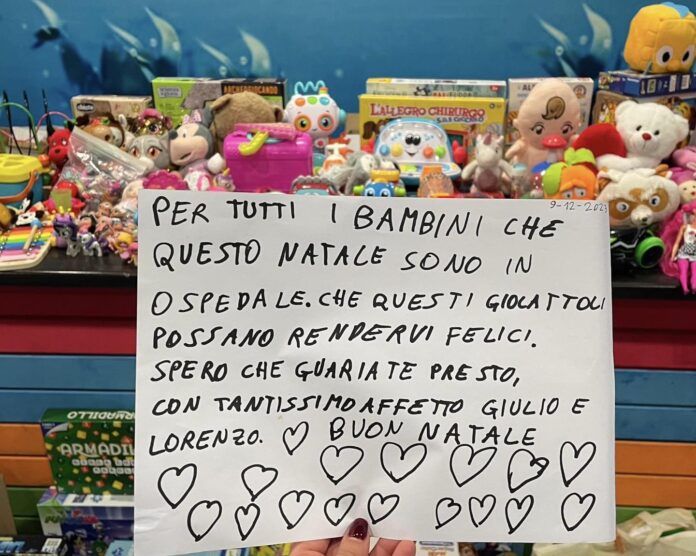 ARCHEOGIOCANDO
L'ALLEGRO CHIRURGO
9-12-2023
PER TUTTI I BAMBINI CHE
QUESTO NATALE SONO IN
OSPEDALE. CHE QUESTI GIOCATTOLI
POSSANO RENDERVI FELICI.
SPERO CHE GUARIATE PRESTO,
CON TANTISSIMO AFFETTO GIULIO E
LORENZO. BUON NATALE
ARMADILLO